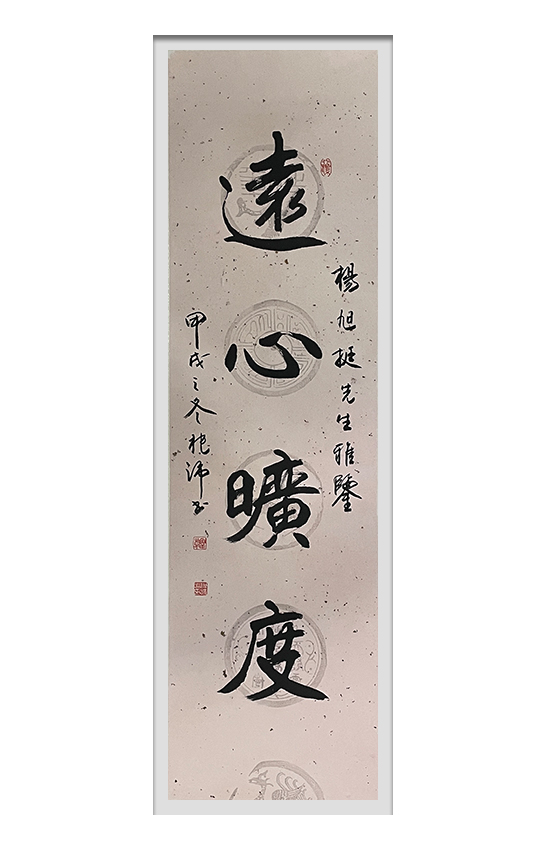 楊旭挺先生雅鑒
遠心曠度
甲戌之冬 沛书